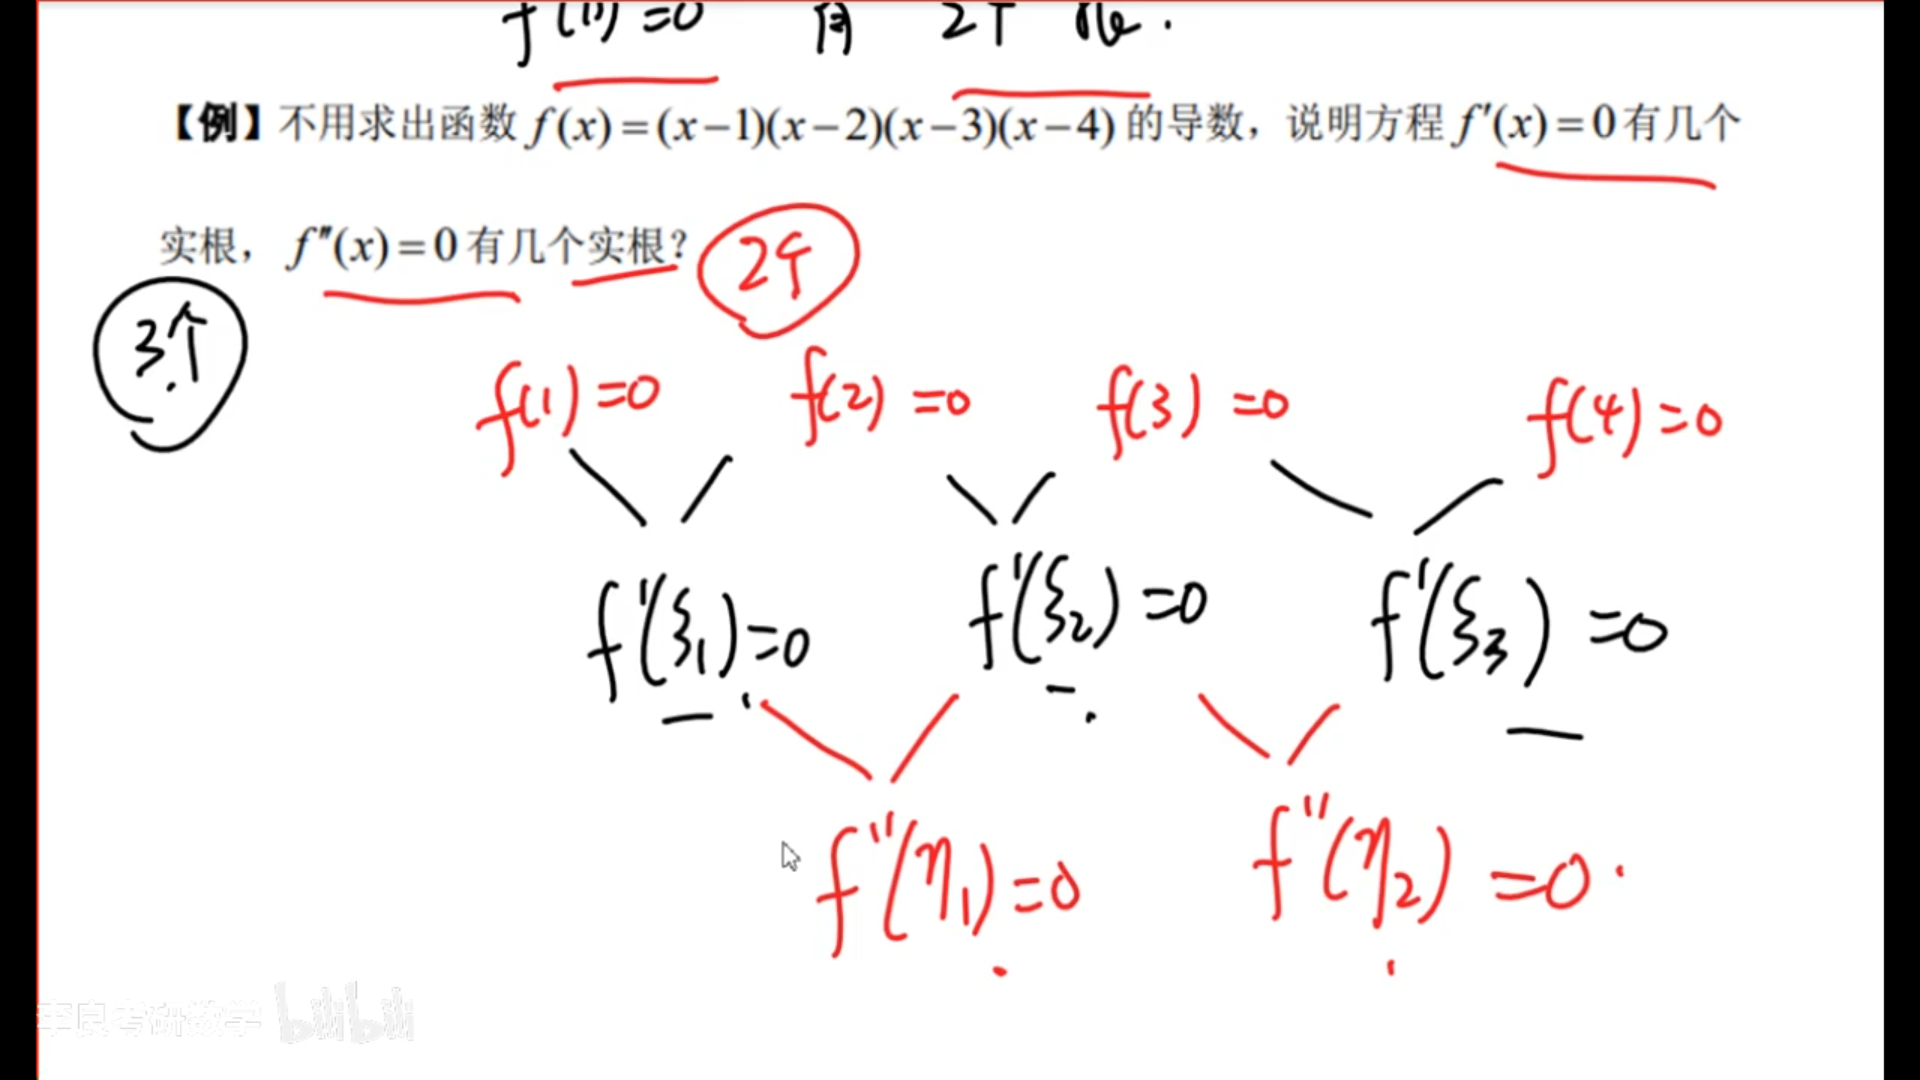 f(1)=0 有 2个
【例】不用求出函数 f(x)=(x−1)(x−2)(x−3)(x−4) 的导数，说明方程 f′(x)=0 有几个
实根，f″(x)=0 有几个实根？ 2个
3个
f(1)=0 f(2)=0 f(3)=0 f(4)=0
f′(ξ₁)=0 f′(ξ₂)=0 f′(ξ₃)=0
f″(η₁)=0 f″(η₂)=0.
李良考研数学 bilibili